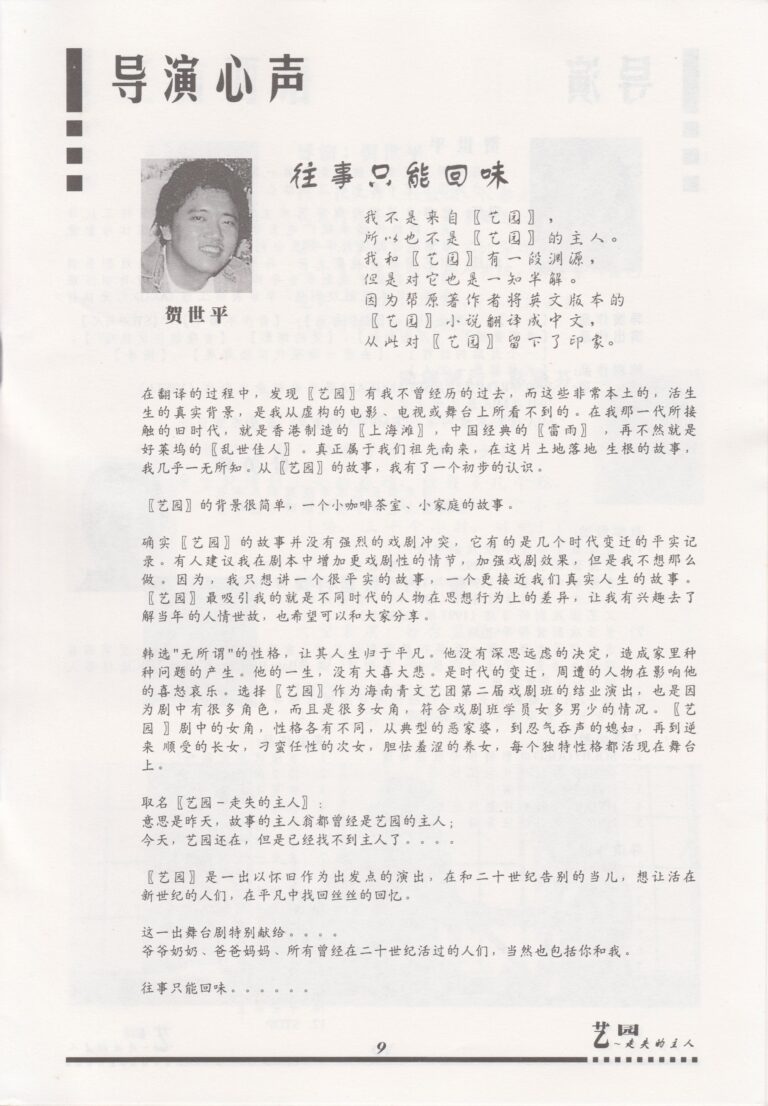 导演心声
往事只能回味
贺世平
我不是来自〖艺园〗，
所以也不是〖艺园〗的主人。
我和〖艺园〗有一段渊源，
但是对它也是一知半解。
因为帮原著作者将英文版本的
〖艺园〗小说翻译成中文，
从此对〖艺园〗留下了印象。
在翻译的过程中，发现〖艺园〗有我不曾经历的过去，而这些非常本土的，活生
生的真实背景，是我从虚构的电影、电视或舞台上所看不到的。在我那一代所接
触的旧时代，就是香港制造的〖上海滩〗，中国经典的〖雷雨〗，再不然就是
好莱坞的〖乱世佳人〗。真正属于我们祖先南来，在这片土地落地 生根的故事，
我几乎一无所知。从〖艺园〗的故事，我有了一个初步的认识。
〖艺园〗的背景很简单，一个小咖啡茶室、小家庭的故事。
确实〖艺园〗的故事并没有强烈的戏剧冲突，它有的是几个时代变迁的平实记
录。有人建议我在剧本中增加更戏剧性的情节，加强戏剧效果，但是我不想那么
做。因为，我只想讲一个很平实的故事，一个更接近我们真实人生的故事。
〖艺园〗最吸引我的就是不同时代的人物在思想行为上的差异，让我有兴趣去了
解当年的人情世故，也希望可以和大家分享。
韩选"无所谓"的性格，让其人生归于平凡。他没有深思远虑的决定，造成家里种
种问题的产生。他的一生，没有大喜大悲。是时代的变迁，周遭的人物在影响他
的喜怒哀乐。选择〖艺园〗作为海南青文艺团第二届戏剧班的结业演出，也是因
为剧中有很多角色，而且是很多女角，符合戏剧班学员女多男少的情况。〖艺
园 〗剧中的女角，性格各有不同，从典型的恶家婆，到忍气吞声的媳妇，再到逆
来 顺受的长女，刁蛮任性的次女，胆怯羞涩的养女，每个独特性格都活现在舞台
上。
取名〖艺园－走失的主人〗：
意思是昨天，故事的主人翁都曾经是艺园的主人；
今天，艺园还在，但是已经找不到主人了。。。。
〖艺园〗是一出以怀旧作为出发点的演出，在和二十世纪告别的当儿，想让活在
新世纪的人们，在平凡中找回丝丝的回忆。
这一出舞台剧特别献给。。。。
爷爷奶奶、爸爸妈妈、所有曾经在二十世纪活过的人们，当然也包括你和我。
往事只能回味。。。。。。
9
艺园
~走失的主人